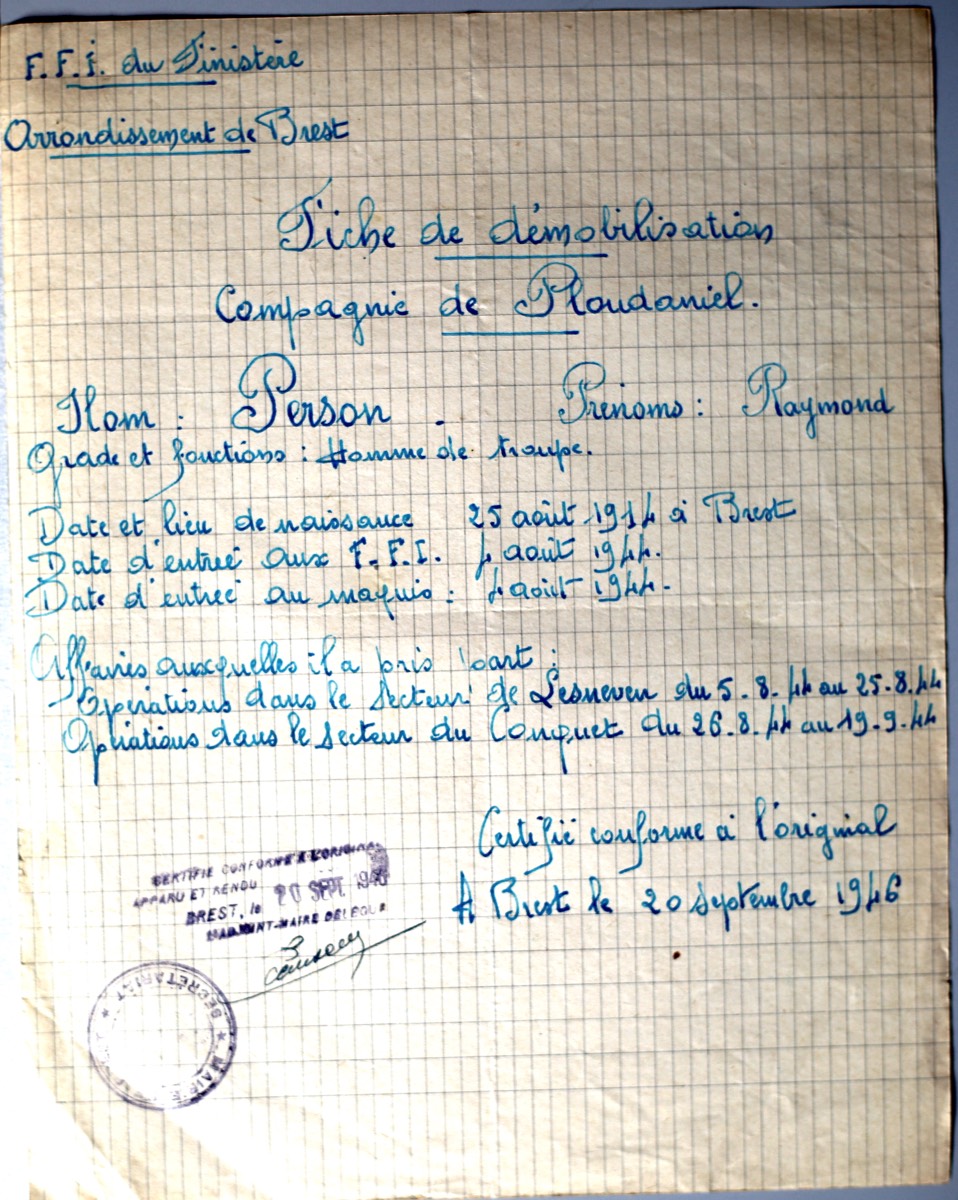 F.F.I. du Finistère
Arrondissement de Brest
Fiche de démobilisation
Compagnie de Ploudaniel.
Nom : Person . Prénoms : Raymond
Grade et fonctions : Homme de troupe.
Date et lieu de naissance 25 août 1914 à Brest
Date d'entreé aux F.F.I. 4 août 1944.
Date d'entreé au maquis : 4 août 1944.
Affaires auxquelles il a pris part :
Opérations dans le secteur de Lesneven du 5.8.44 au 25.8.44
Opérations dans le secteur du Conquet du 26.8.44 au 19.9.44
Certifié conforme à l'original
A Brest le 20 septembre 1946
CERTIFIE CONFORME A L'ORIGINAL
APPARU ET RENDU
BREST, le 20 SEPT 1946
L'ADJOINT-MAIRE DELEGUE
SECRÉTARIAT
MAIRIE